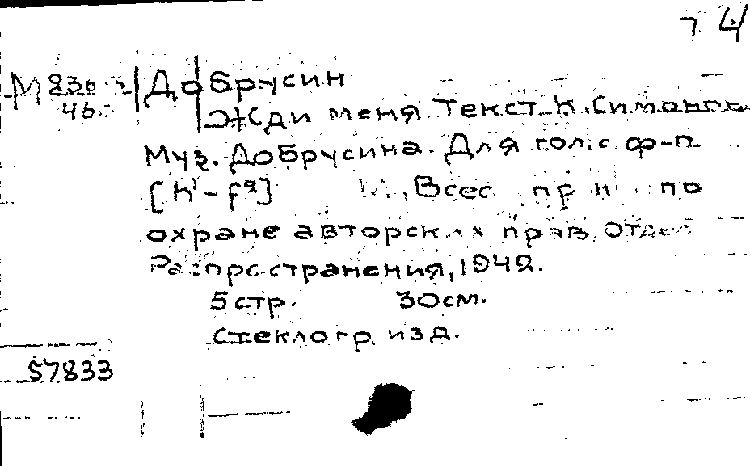 74
М 836 Добрусин
46
Жди меня. Текст К. Симонова
Муз. Добрусина. Для гол. с ф-п
[h¹ - f²] М., Всес пр по
охране авторских прав. Отдел
Распространения, 1942.
5 стр. 30 см.
Стеклогр. изд.
57833